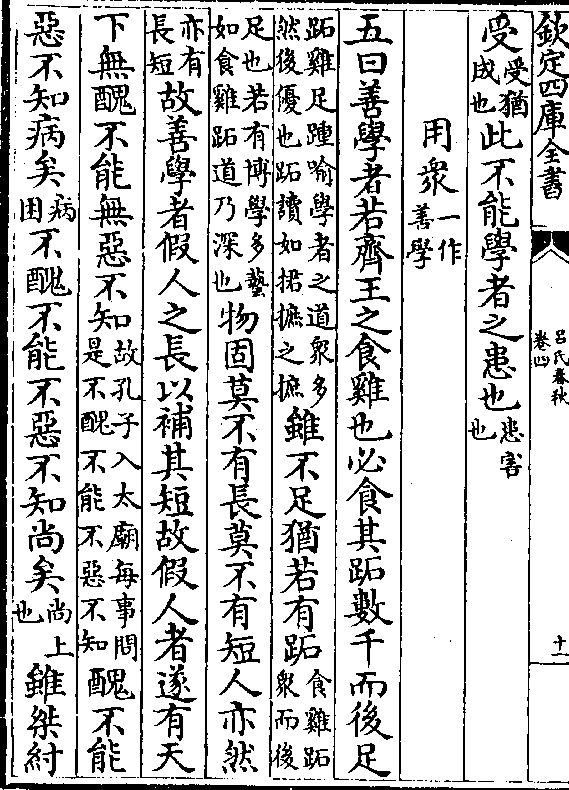 欽定四庫全書
呂氏春秋
卷四
十一
受受猶成也此不能學者之患也患害也
用衆一作善學
五曰善學者若齊王之食雞也必食其跖數千而後足
跖雞足踵喻學者之道衆多然後優也跖讀如捃摭之摭雖不足猶若有跖食雞跖衆而後
足也若有博學多藝如食雞跖道乃深也物固莫不有長莫不有短人亦然
亦有長短故善學者假人之長以補其短故假人者遂有天
下無醜不能無惡不知故孔子入太廟每事問是不醜不能不惡不知醜不能
惡不知病矣病困不醜不能不惡不知尚矣尚上也雖桀紂